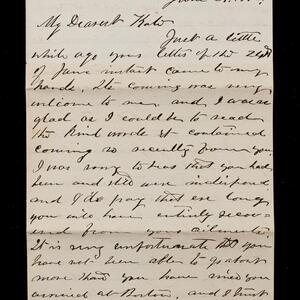 My Dearest Kate
Just a little
while ago your letter of the
of June instant came to my
hands. Its coming was very
welcome to me, and I was as
glad as I could be to read
the kind words it contained
coming so recently from you.
I was sorry to hear that you had
been and still were indisposed
and I do pray that ere long
you will have entirely recov-
ered from your ailments.
It is very unfortunate that you
have not been able to go about
more than you have since you
arrived at Boston, and I trust